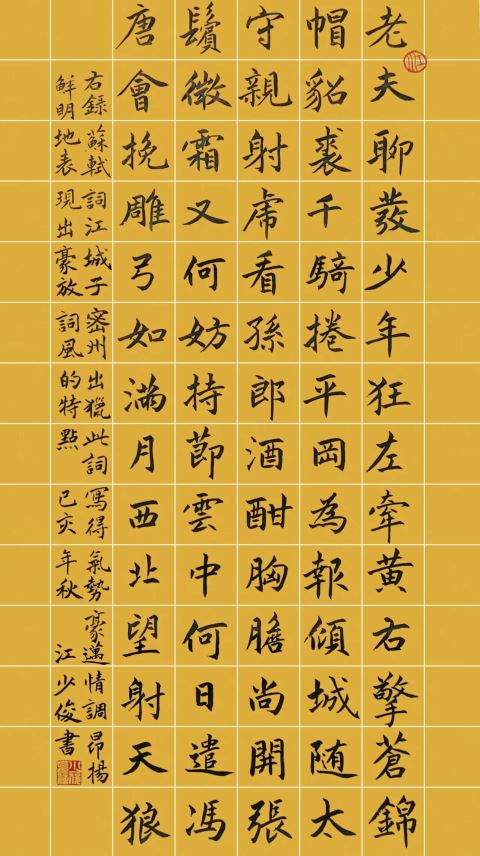 老夫聊發少年狂左牽黃右擎蒼錦
帽貂裘千騎捲平岡為報傾城随太
守親射虎看孫郎酒酣胸膽尚開張
鬢微霜又何妨持節雲中何日遣馮
唐會挽雕弓如滿月西北望射天狼
右錄蘇軾詞江城子密州出獵此詞寫得氣勢豪邁情調昂揚
鮮明地表現出豪放詞風的特點己亥年秋江少俊書